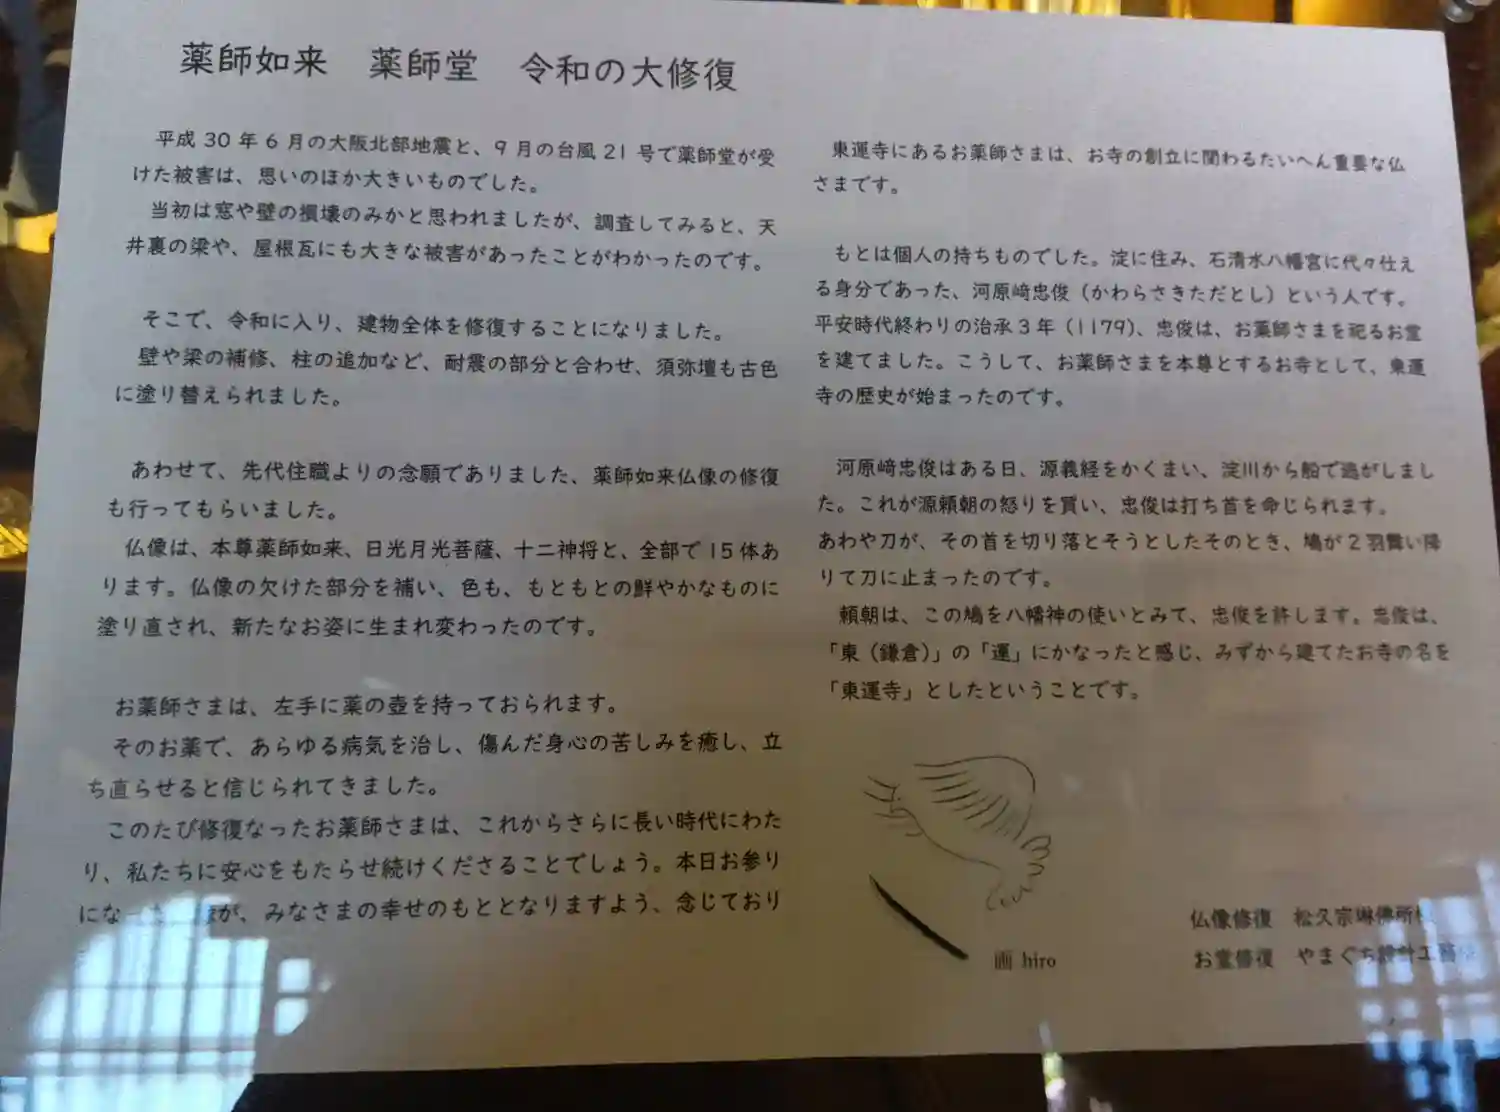 薬師如来　薬師堂　令和の大修復
平成30年6月の大阪北部地震と、9月の台風21号で薬師堂が受
けた被害は、思いのほか大きいものでした。
当初は窓や壁の損壊のみかと思われましたが、調査してみると、天
井裏の梁や、屋根瓦にも大きな被害があったことがわかったのです。
そこで、令和に入り、建物全体を修復することになりました。
壁や梁の補修、柱の追加など、耐震の部分と合わせ、須弥壇も古色
に塗り替えられました。
あわせて、先代住職よりの念願でありました、薬師如来仏像の修復
も行ってもらいました。
仏像は、本尊薬師如来、日光月光菩薩、十二神将と、全部で15体あ
ります。仏像の欠けた部分を補い、色も、もともとの鮮やかなものに
塗り直され、新たなお姿に生まれ変わったのです。
お薬師さまは、左手に薬の壺を持っておられます。
そのお薬で、あらゆる病気を治し、傷んだ身心の苦しみを癒し、立
ち直らせると信じられてきました。
このたび修復なったお薬師さまは、これからさらに長い時代にわた
り、私たちに安心をもたらせ続けくださることでしょう。本日お参り
にな が、みなさまの幸せのもととなりますよう、念じており
東運寺にあるお薬師さまは、お寺の創立に関わるたいへん重要な仏
さまです。
もとは個人の持ちものでした。淀に住み、石清水八幡宮に代々仕え
る身分であった、河原﨑忠俊（かわらさきただとし）という人です。
平安時代終わりの治承3年（1179）、忠俊は、お薬師さまを祀るお堂
を建てました。こうして、お薬師さまを本尊とするお寺として、東運
寺の歴史が始まったのです。
河原﨑忠俊はある日、源義経をかくまい、淀川から船で逃がしまし
た。これが源頼朝の怒りを買い、忠俊は打ち首を命じられます。
あわや刀が、その首を切り落とそうとしたそのとき、鳩が2羽舞い降
りて刀に止まったのです。
頼朝は、この鳩を八幡神の使いとみて、忠俊を許します。忠俊は、
「東（鎌倉）」の「運」にかなったと感じ、みずから建てたお寺の名を
「東運寺」としたということです。
画 hiro
仏像修復　松久宗琳佛所
お堂修復　やまぐち設計工務